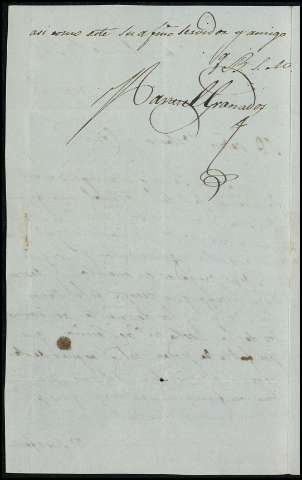 asi como este su afmo servidor y amigo
q B. S. M.
Manuel Granados